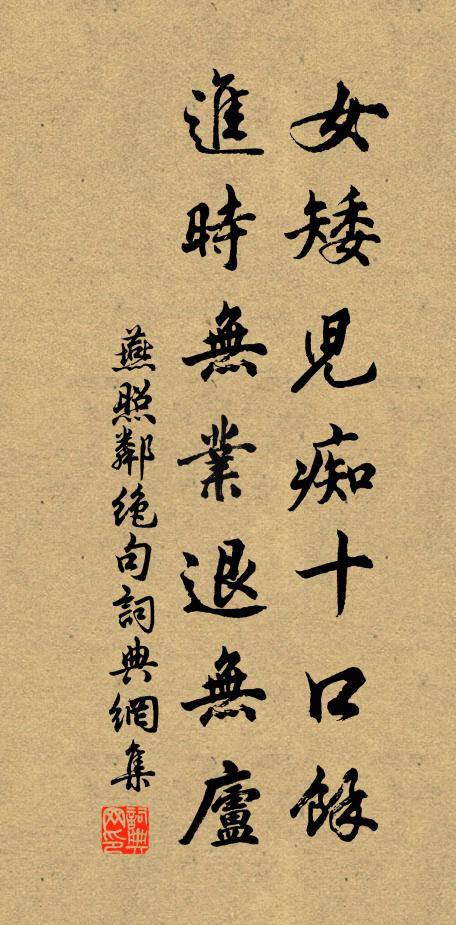 女矮兒痴十口餘
進時無業退無廬
燕照鄰絶句詞典網集
詞典網印